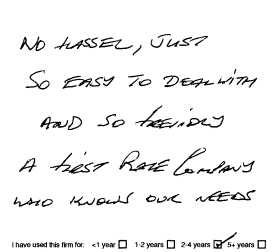 NO HASSEL, JUST
SO EASY TO DEAL WITH
AND SO FRIENDLY
A FIRST RATE COMPANY
WHO KNOWS OUR NEEDS
I have used this firm for: <1 year ☐ 1-2 years ☐ 2-4 years ☑ 5+ years ☐